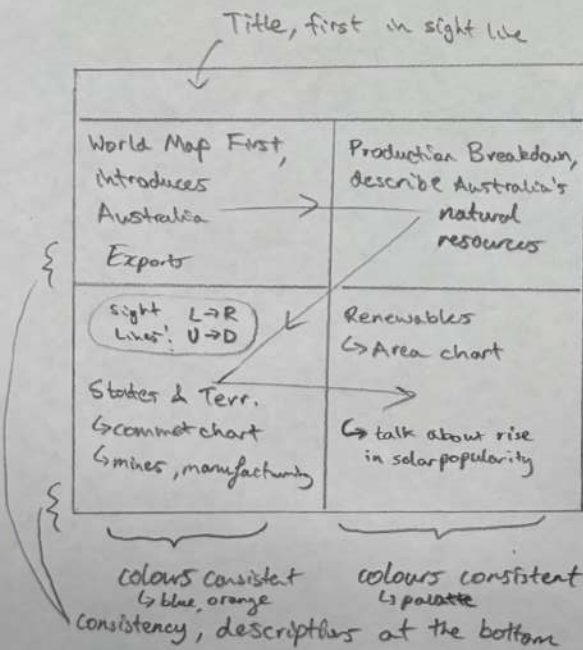 Title, first in sight line
World Map First,
introduces
Australia
Exports
Production Breakdown,
describe Australia's
natural
resources
Sight L→R
Lines: U→D
States & Terr.
↳ commet chart
↳ mines, manufacturing
Renewables
↳ Area chart
↳ talk about rise
in solar popularity
colours consistent
↳ blue, orange
colours consistent
↳ palatte
consistency, descriptions at the bottom